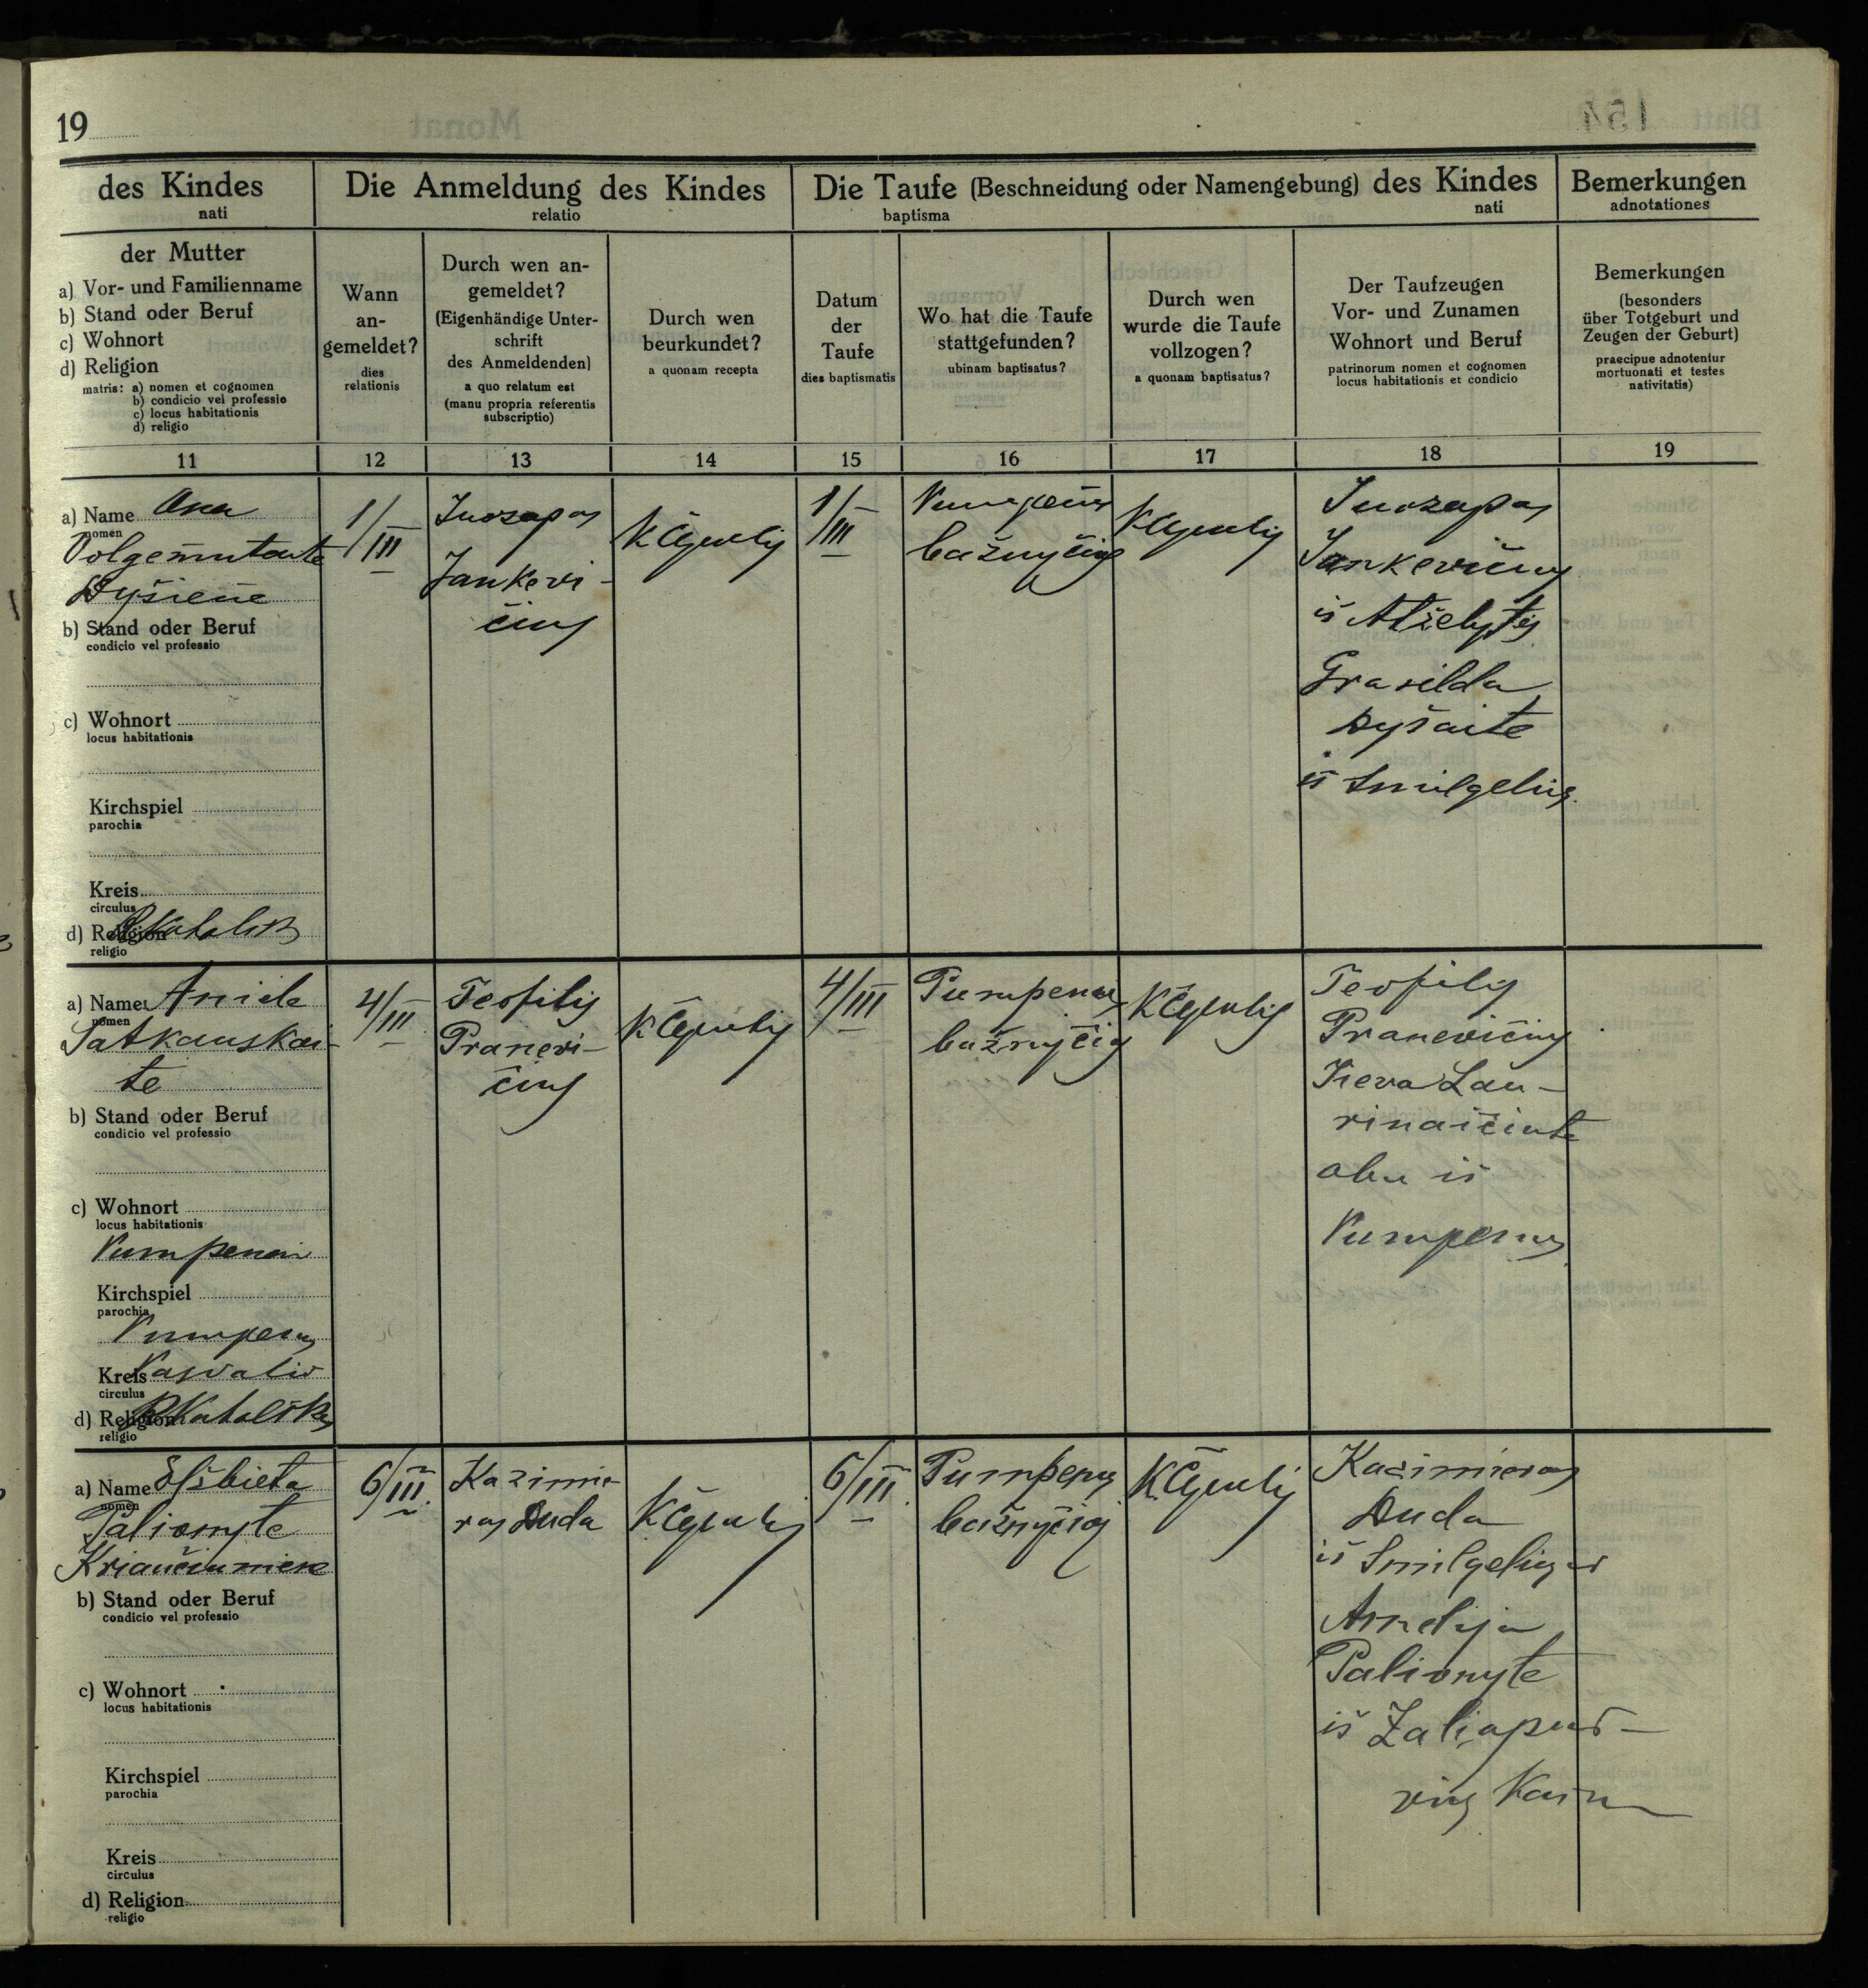 19
des Kindes
nati
Die Anmeldung des Kindes
relatio
Die Taufe (Beschneidung oder Namengebung) des Kindes
baptisma
nati
Bemerkungen
adnotationes
der Mutter
a) Vor- und Familienname
b) Stand oder Beruf
c) Wohnort
d) Religion
matris: a) nomen et cognomen
b) condicio vel professio
c) locus habitationis
d) religio
Wann
an-
gemeldet?
dies
relationis
Durch wen an-
gemeldet?
(Eigenhändige Unter-
schrift
des Anmeldenden)
a quo relatum est
(manu propria referentis
subscriptio)
Durch wen
beurkundet?
a quonam recepta
Datum
der
Taufe
dies baptismatis
Wo hat die Taufe
stattgefunden?
ubinam baptisatus?
Durch wen
wurde die Taufe
vollzogen?
a quonam baptisatus?
Der Taufzeugen
Vor- und Zunamen
Wohnort und Beruf
patrinorum nomen et cognomen
locus habitationis et condicio
Bemerkungen
(besonders
über Totgeburt und
Zeugen der Geburt)
praecipue adnotentur
mortuonati et testes
nativitatis)
11 12 13 14 15 16 17 18 19
a) Name Ona
nomen
Dyšienė
b) Stand oder Beruf
condicio vel professio
c) Wohnort
locus habitationis
Kirchspiel
parochia
Kreis
circulus
d) Religion R Katalik
religio
1/III
Juozapas
Jankevi-
čius
1/III
Pumpėnų
bažnyčioj
Juozapas
Jankevičius
iš Atžalytės
Grasilda
Dyšaitė
iš Smilgelių
a) Name Aniele
nomen
Satkauskai-
te
b) Stand oder Beruf
condicio vel professio
c) Wohnort
locus habitationis
Pumpenai
Kirchspiel
parochia
Pumpenų
Kreis Pasvalio
circulus
d) Religion R Katalikų
religio
4/III
Teofilis
Pranevi-
čius
4/III
Pumpenų
bažnyčioj
Teofilis
Pranevičius
Ieva Lau-
rinaičiute
abu iš
Pumpenų
a) Name Elžbieta
nomen
Palionyte
Kriaučiuniene
b) Stand oder Beruf
condicio vel professio
c) Wohnort
locus habitationis
Kirchspiel
parochia
Kreis
circulus
d) Religion
religio
6/III
Kazimie-
ras Duda
6/III
Pumpenų
bažnyčioj
Kazimieras
Duda
iš Smilgelių
Amelija
Palionyte
iš